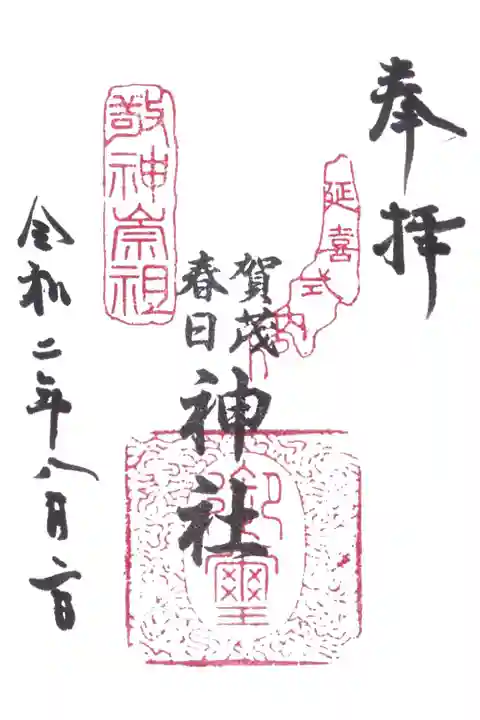 奉拝
延喜式内
賀茂
春日
神社
御璽
敬神崇祖
令和二年八月二日